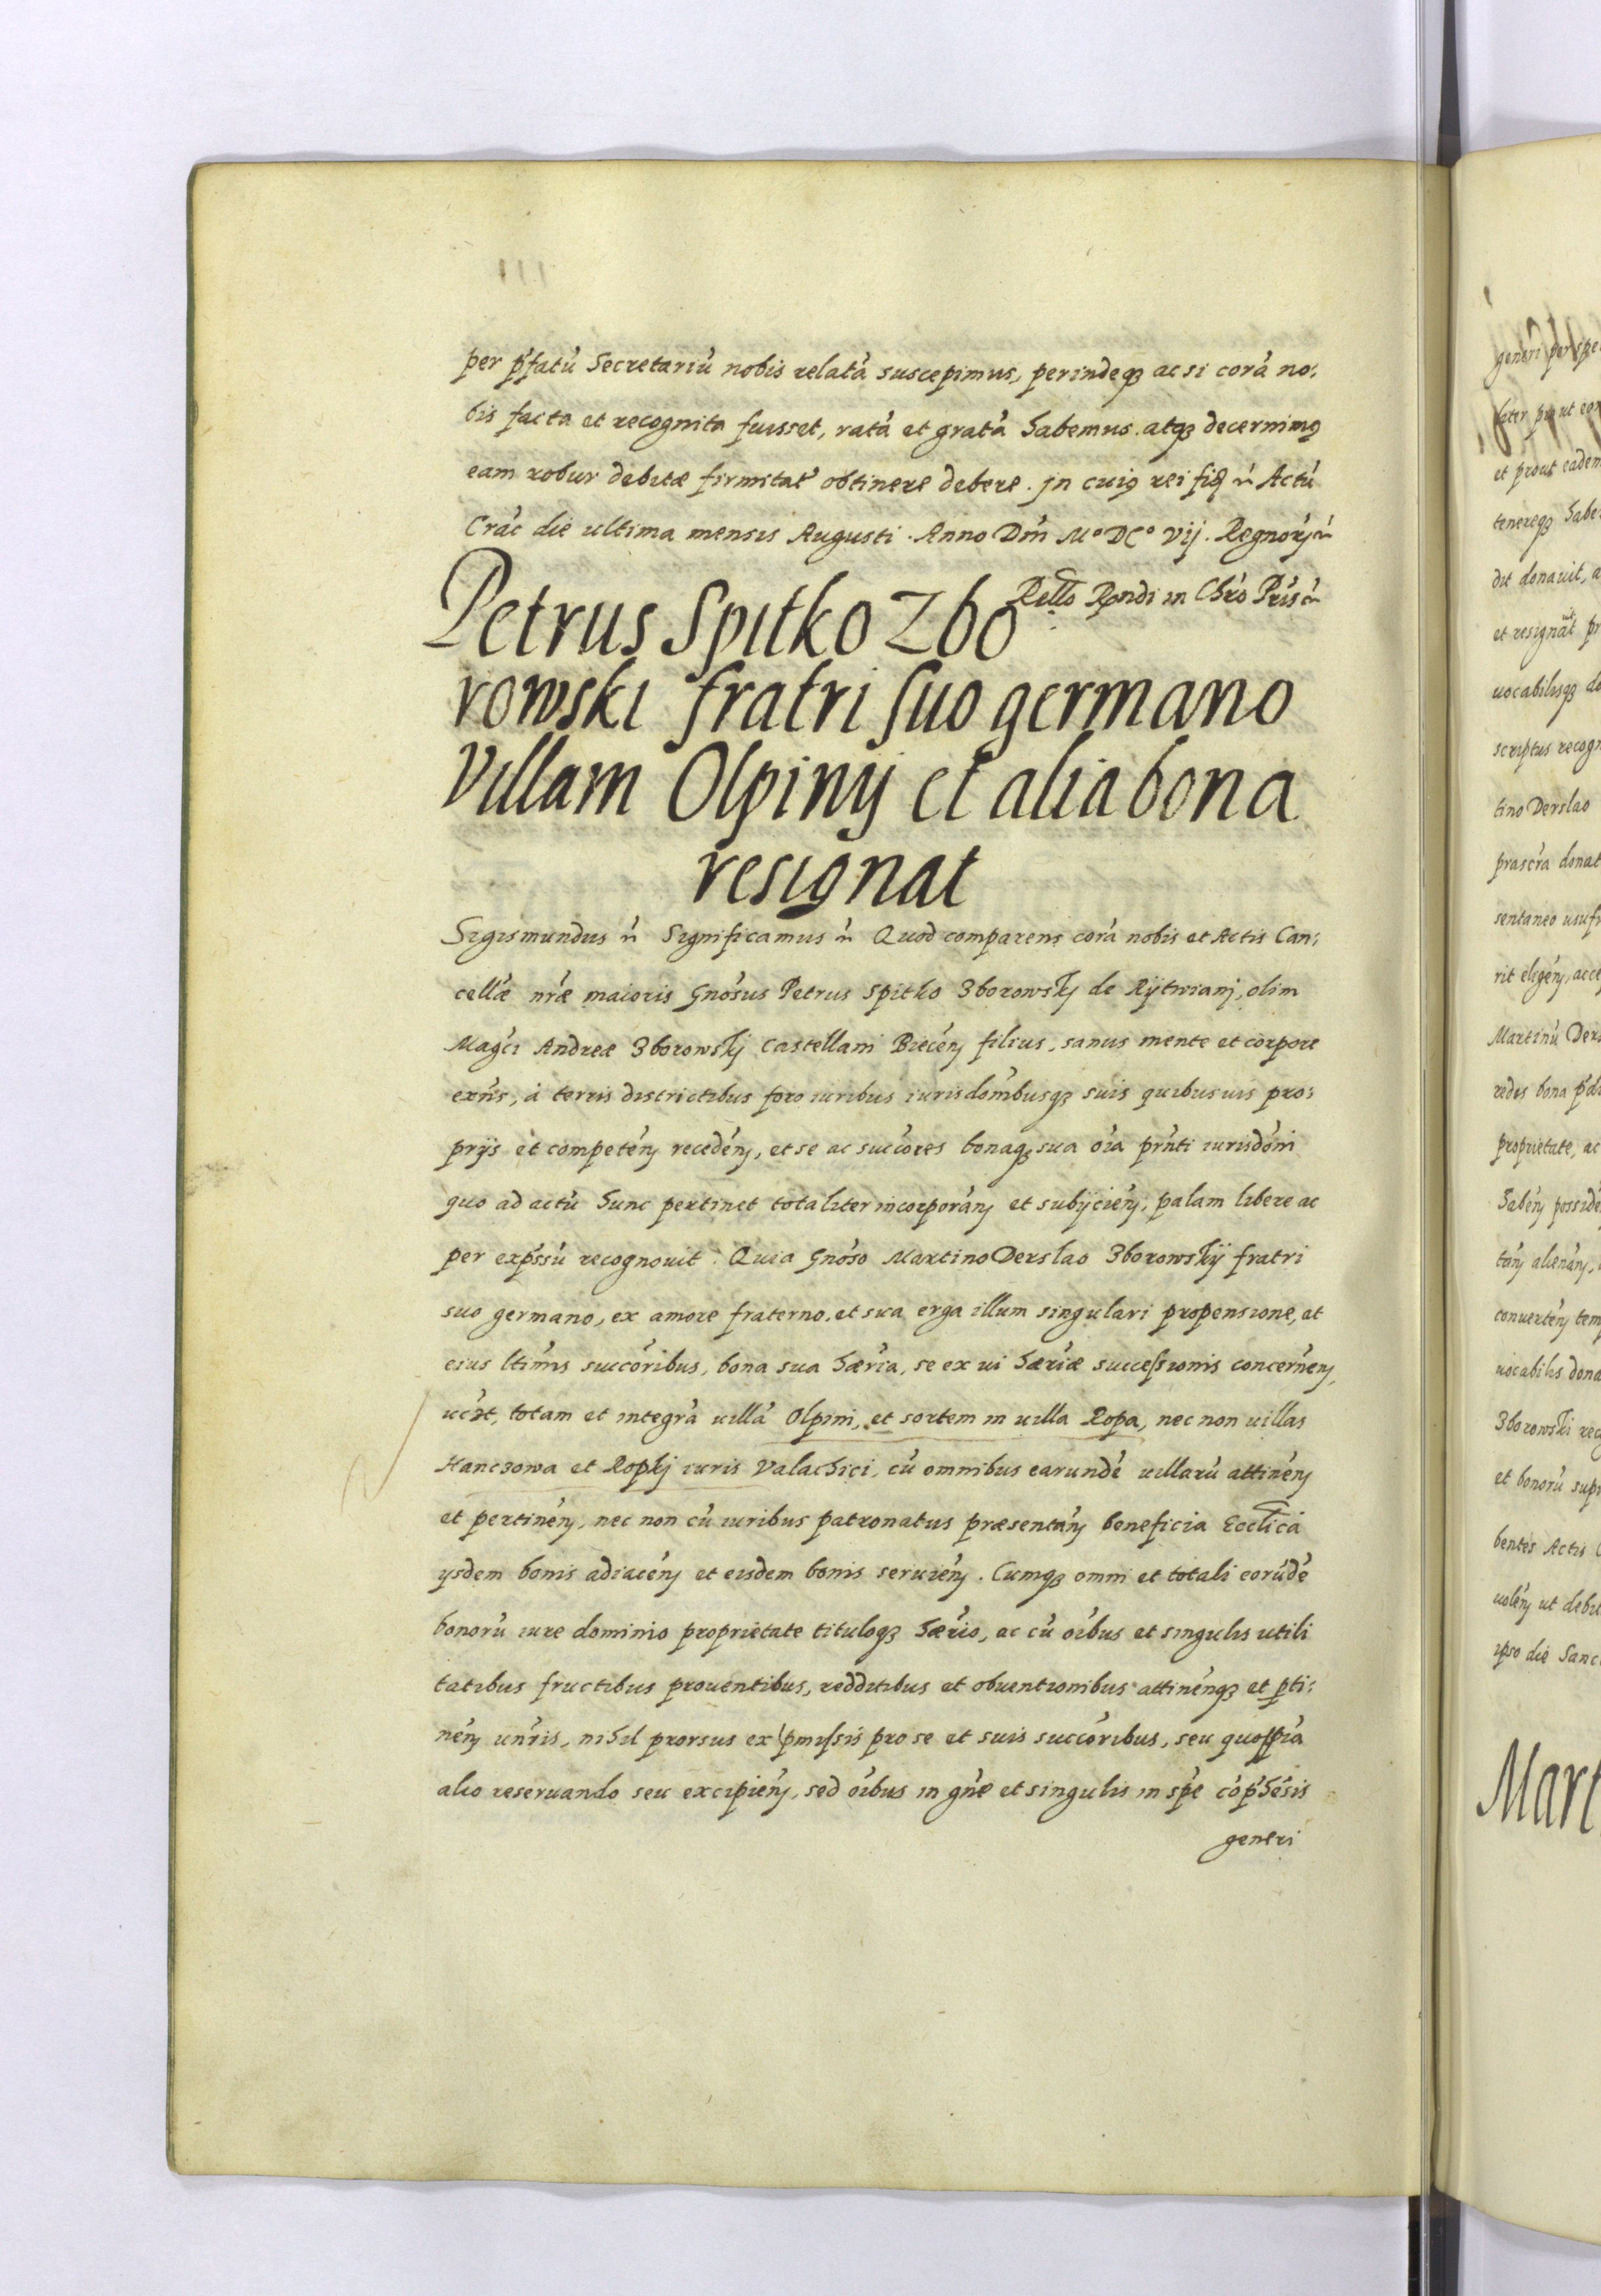 per pʼfatuʼ Secretariuʼ nobis relataʼ suscepimus, perindeqʒ ac si coraʼ no:
bis facta et recognita fuisset, rataʼ et grataʼ habemus. atqʒ decernimꝰ
eam robur debitæ firmitatʼ obtinere debere. jn cuiꝰ rei fiđ ñ Actuʼ
Cracʼ die ultima mensis Augusti. Anno Dniʼ Mº DCº Vij. Regnorʼ ñ
Relło Rʼndi in Chrʼo Prisʼ ñ
Petrus Spitko Zbo
rowski fratri suo germano
Villam Olpiny et alia bona
resignat
Sigismundus ñ Significamus ñ Quod comparens coraʼ nobis et Actis Can:
cellʼæ nrʼæ maioris Gnoʼsus Petrus Spitko Zborowskj de Rÿtwianj, olim
Magʼci Andreæ Zborowskj Castellani Biecenʼ filius, sanus mente et corpore
exnʼs, à terris districtibus foro iuribus iurisdomʼbusqʒ suis quibusuis pro:
prijs et competenʼ recedenʼ, et se ac succoʼres bonaqʒ sua oiʼa prnʼti iurisdoʼni
quo ad actuʼ hunc pertinet totaliter incorporanʼ et subijcienʼ, palam libere ac
per expʼssuʼ recognouit. Quia Gnoʼso Martino Derslao Zborowskij fratri
suo germano, ex amore fraterno, et sua erga illum singulari propensione, et
eius ltimʼis succoʼribus, bona sua hæriʼa, se ex ui hæriʼæ successionis concernenʼ,
ucʒt, totam et integraʼ uillaʼ Olpini, et sortem in uilla Ropa, nec non uillas
Hanczowa et Ropkj iuris Valachici, cuʼ omnibus earundeʼ uillaruʼ attinenʼ
et pertinenʼ, nec non cuʼ iuribus patronatus præsentanʼ beneficia Ecclʼica
ysdem bonis adiacenʼ et eisdem bonis seruienʼ. Cumqʒ omni et totali eorundeʼ
bonoruʼ iure dominio proprietate tituloqʒ hæriʼo, ac cuʼ oiʼbus et singulis utili
tatibus fructibus prouentibus, redditibus et obuentionibus attinenʼqʒ et pti:
nenʼ unʼris, nihil prorsus ex pʼmissis pro se et suis succoʼribus, seu quospiaʼ
alio reseruando seu excipienʼ, sed oiʼbus in gnʼe et singulis in spʼe coʼpʼheʼsis
generi